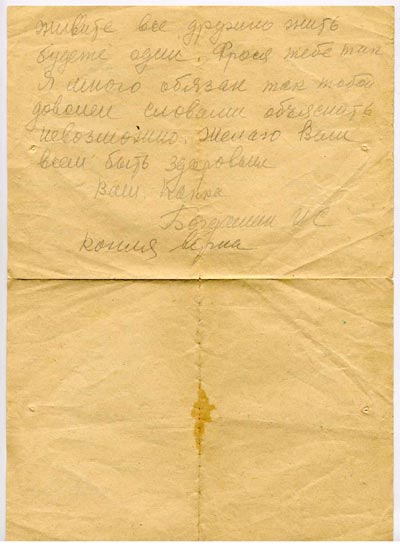 живите все дружно жить
будете одни. Фрося тебе так
Я много обязан так тобой
доволен словами объяснять
невозможно. Желаю Вам
всем быть здоровыми
Ваш
ИС
копия верна